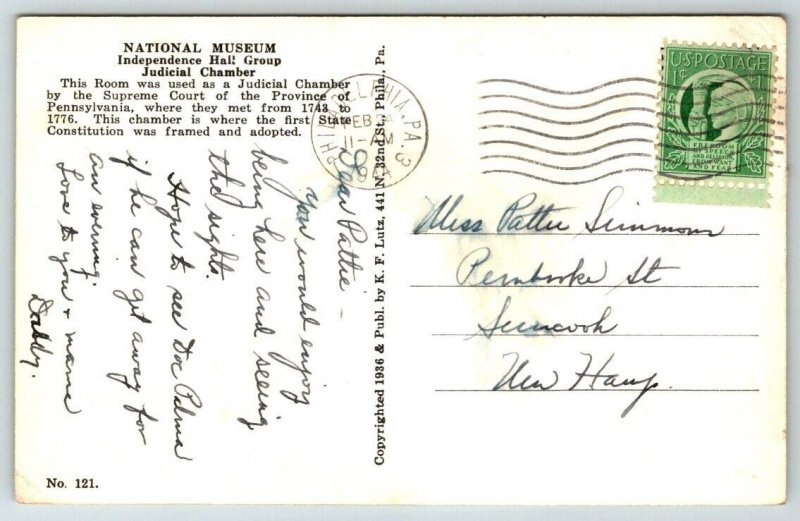 NATIONAL MUSEUM
Independence Hall Group
Judicial Chamber
This Room was used as a Judicial Chamber
by the Supreme Court of the Province of
Pennsylvania, where they met from 1743 to
1776. This chamber is where the first State
Constitution was framed and adopted.
Dear Pattie -
You would enjoy
being here and seeing
the sights.
Hope to see Doc Palma
if he can get away for
an evening.
Love to you + mama
Daddy.
No. 121.
Copyrighted 1936 & Publ. by K. F. Lutz, 441 N. 32nd St., Phila., Pa.
PHILADELPHIA, PA. 3
FEB
11 - AM
U.S. POSTAGE
1¢ 1¢
FREEDOM
OF SPEECH
AND RELIGION
FROM WANT
AND FEAR
Miss Pattie Simmons
Pembroke St
Suncook
New Hamp.